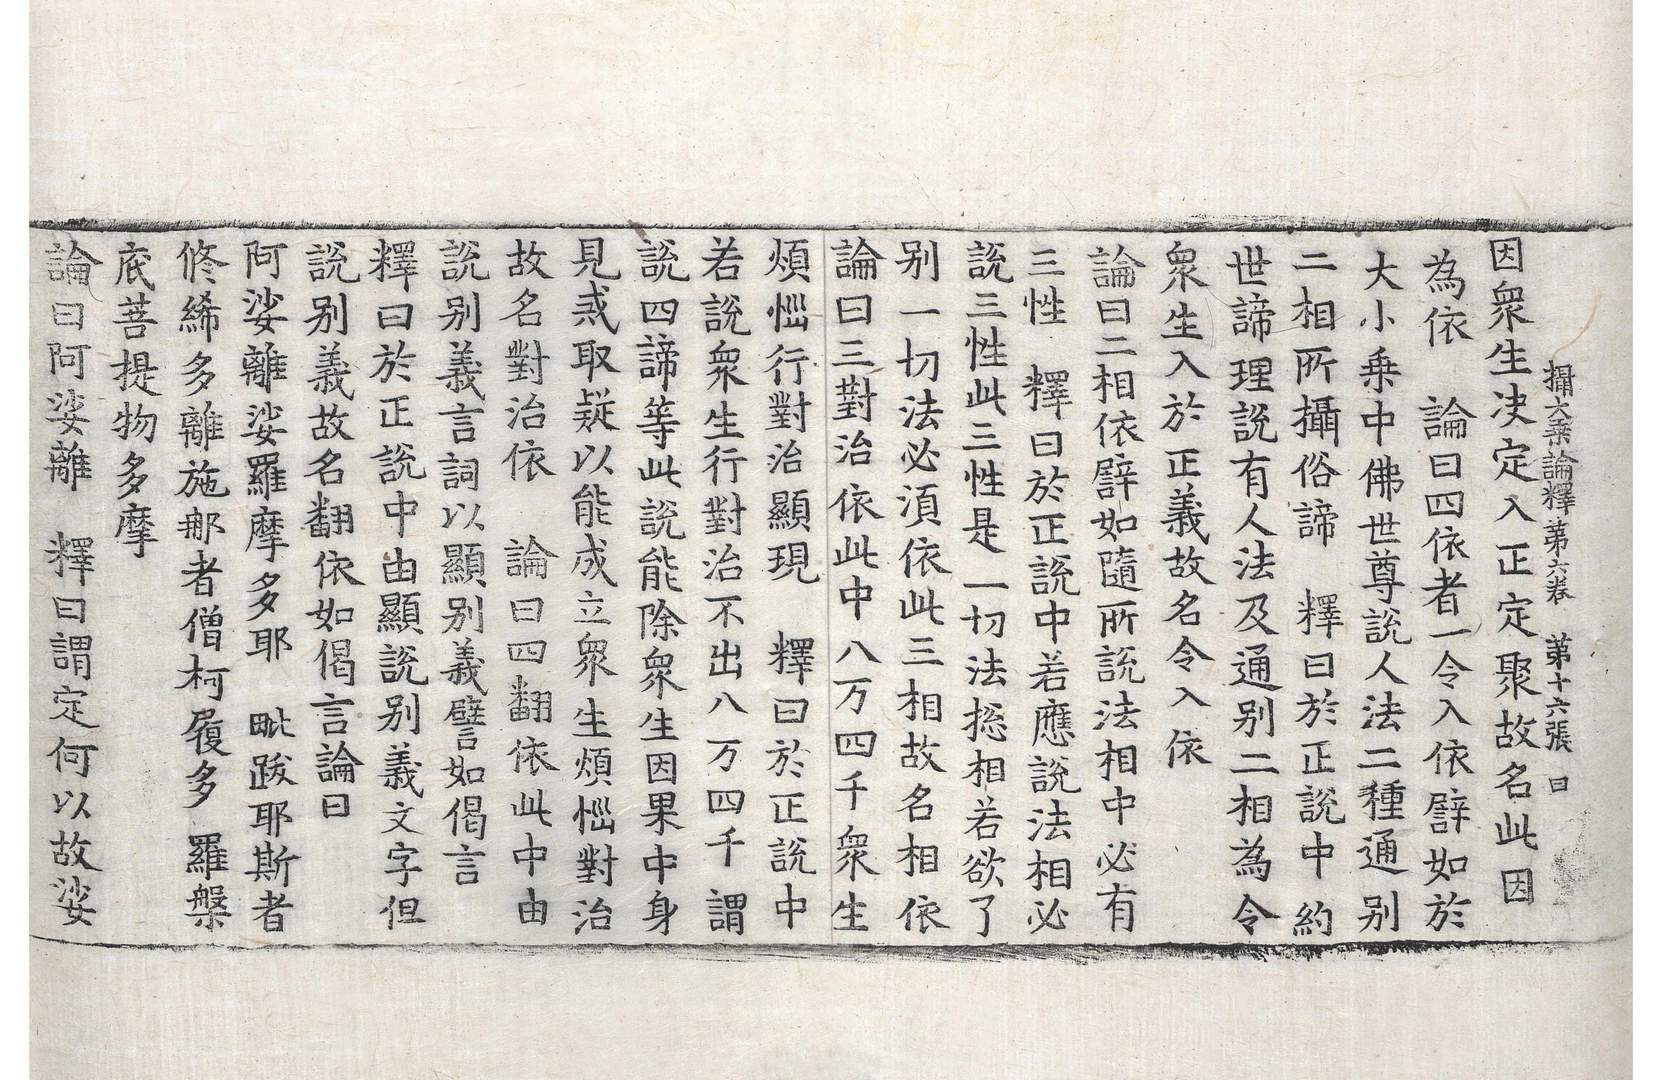 攝大乗論釋第六卷　第十六張　曰
因衆生决定入正定聚故名此因
為依　論曰四依者一令入依譬如於
大小乗中佛世尊説人法二種通别
二相所攝俗諦　釋曰於正説中約
世諦理説有人法及通别二相為令
衆生入於正義故名令入依
論曰二相依譬如隨所説法相中必有
三性　釋曰於正説中若應説法相必
説三性此三性是一切法揔相若欲了
别一切法必湏依此三相故名相依
論曰三對治依此中八万四千衆生
煩惱行對治顯現　釋曰於正説中
若説衆生行對治不出八万四千謂
説四諦等此説能除衆生因果中身
見戒取疑以能成立衆生煩惱對治
故名對治依　論曰四翻依此中由
説别義言詞以顯别義譬如偈言
釋曰於正説中由顯説别義文字但
説别義故名翻依如偈言論曰
阿娑離娑羅摩多耶　毗跋耶斯者
修絺多離施那者僧柯履多　羅槃
底菩提物多摩
論曰阿娑離　釋曰謂定何以故娑